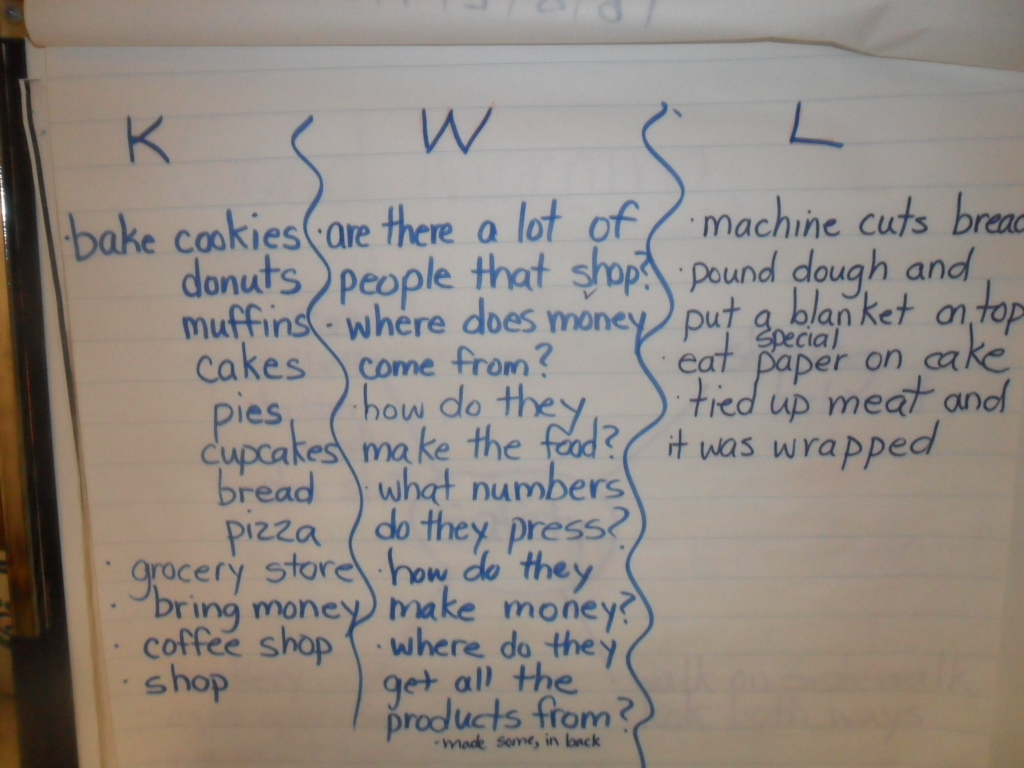 K
·bake cookies
donuts
muffins
cakes
pies
cupcakes
bread
pizza
· grocery store
· bring money
· coffee shop
· shop
W
·are there a lot of
people that shop?
· where does money
come from?
·how do they
make the food?
·what numbers
do they press?
·how do they
make money?
·where do they
get all the
products from?
-made some, in back
L
·machine cuts bread
·pound dough and
put a blanket on top
special
·eat paper on cake
·tied up meat and
it was wrapped